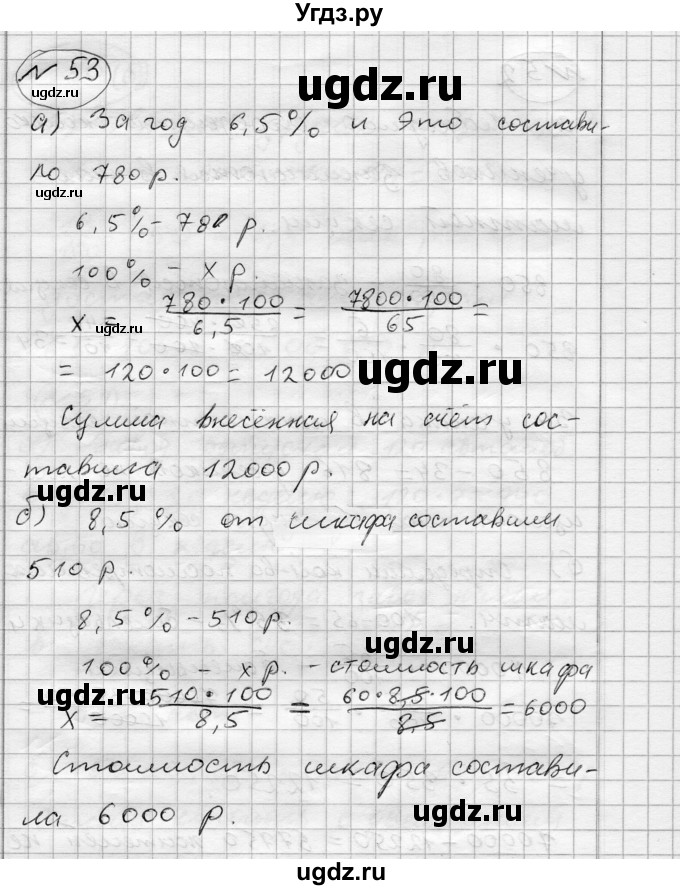 Угдз.ру
№ 53
ugdz.ru
ugdz.ru
а) За год 6,5% и это состави-
ugdz.ru
ло 780 р.
ugdz.ru
6,5% - 780 р.
100% - x р.
x = 780·100/6,5 = 7800·100/65 =
ugdz.ru
= 120·100 = 12000
ugdz.ru
Сумма внесённая на счёт сос-
тавила 12000 р.
ugdz.ru
б) 8,5% от шкафа составили
510 р.
8,5% - 510 р.
ugdz.ru
100% - x р. - стоимость шкафа
ugdz.ru
x = 510·100/8,5 = 60·8,5·100/8,5 = 6000
Стоимость шкафа состави-
ла 6000 р.
ugdz.ru
ugdz.ru